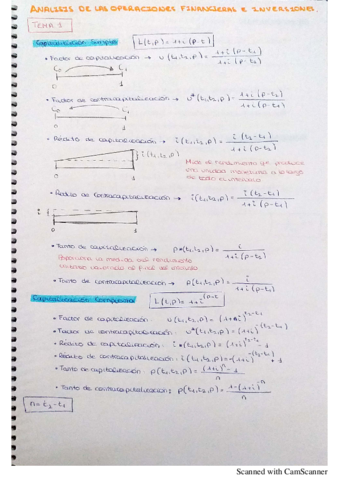 ANALISIS DE LAS OPERACIONES FINANCIERAS E INVERSIONES
TEMA 1
Capitalización Simple L(t,p) = 1+i(p-t)
• Factor de capitalización → u(t1,t2,p) = 1+i(p-t1) / 1+i(p-t2)
C0 C1
0 1
• Factor de contracapitalización → u*(t1,t2,p) = 1+i(p-t2) / 1+i(p-t1)
0 1
• Rédito de capitalización → i(t1,t2,p) = i(t2-t1) / 1+i(p-t2)
i(t1,t2,p)
0 1
Mide el rendimiento que produce
una unidad monetaria a lo largo
de todo el intervalo
• Rédito de contracapitalización → i(t1,t2,p) = i(t2-t1) / 1+i(p-t1)
0 1
• Tanto de capitalización → p*(t1,t2,p) = i / 1+i(p-t2)
• Tanto de contracapitalización → p(t1,t2,p) = i / 1+i(p-t1)
Capitalización Compuesta L(t,p) = 1+i^(p-t)
• Factor de capitalización: u(t1,t2,p) = (1+i)^t2-t1
• Factor de contracapitalización: u*(t1,t2,p) = (1+i)^-(t2-t1)
• Rédito de capitalización: i*(t1,t2,p) = (1+i)^t2-t1 - 1
• Rédito de contracapitalización:
• Tanto de capitalización: p(t1,t2,p) = (1+i)^n - 1 / n
• Tanto de contracapitalización: p(t1,t2,p) = 1-(1+i)^-n / n
n = t2 - t1
Scanned with CamScanner